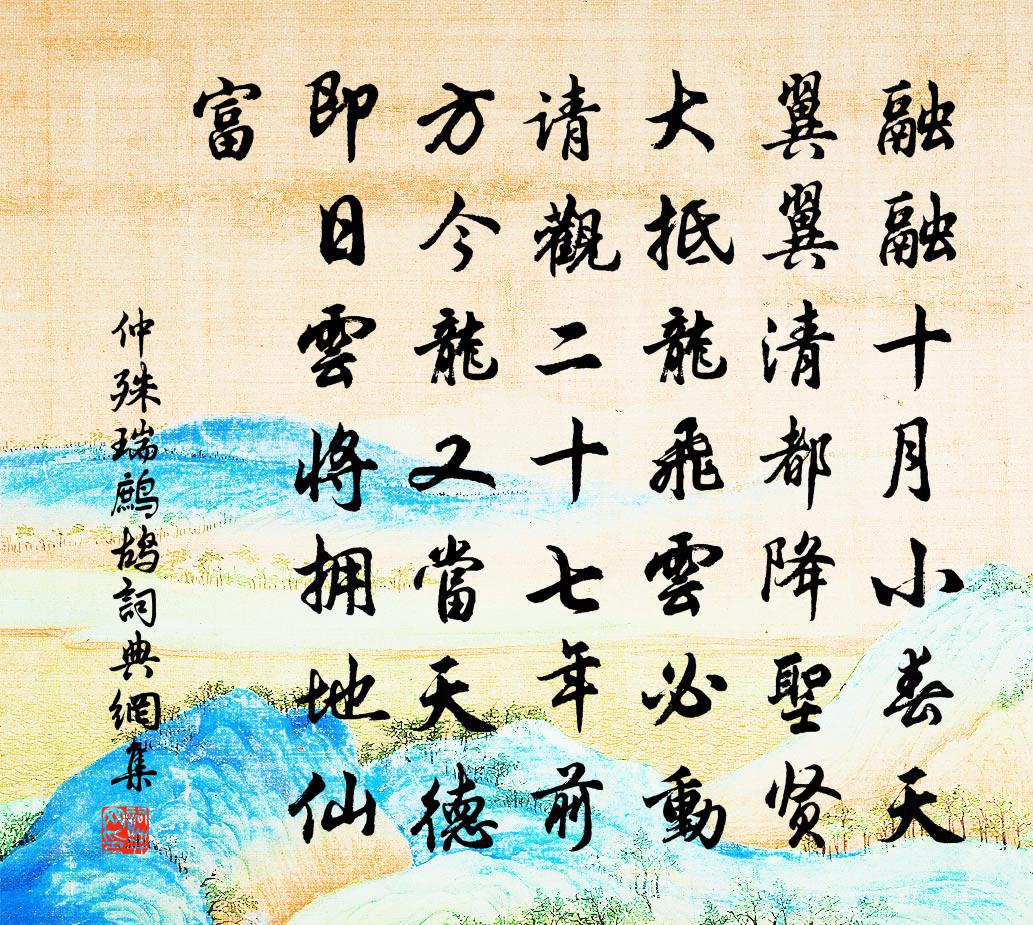 融融十月小春天
翼翼清都降聖贤
大抵龍飛雲必動
请觀二十七年前
方今龍又當天德
即日雲將拥地仙
富
仲殊瑞鷓鴣詞典網集